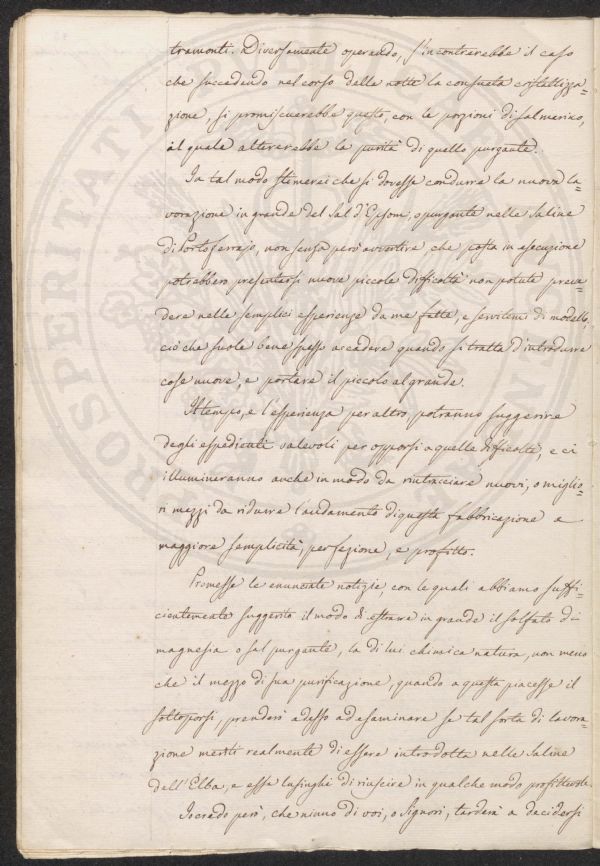 tramonti. Diversamente operando, s'incontrerebbe il caso
che succedendo nel corso della notte la consueta cristallizza=
zione, si promiscuerebbe questo, con le porzioni di sal marino,
il quale altererebbe la purità di quello purgante.
In tal modo stimerei che si dovesse condurre la nuova la=
vorazione in grande del Sal d'Epsom, o purgante nelle Saline
di Portoferrajo, non senza però avvertire che posta in esecuzione
potrebbero presentarsi nuove piccole difficoltà non potute preve=
dere nelle semplici esperienze da me fatte, e servitemi di modello,
ciò che suole bene spesso accadere quando si tratta d'introdurre
cose nuove, e portare il piccolo al grande.
Il tempo, e l'esperienza per altro, potranno suggerire
degli espedienti valevoli per opporsi a quelle difficoltà, e ci
illumineranno anche in modo da rintracciare nuovi, o miglio=
ri mezzi da ridurre l'andamento di questa fabbricazione a
maggiore semplicità, perfezione, e profitto.
Premesse le enunciate notizie, con le quali abbiamo suffi=
cientemente suggerito il modo di estrarre in grande il solfato di
magnesia o sal purgante, la di lui chimica natura, non meno
che il mezzo di sua purificazione, quando a questa piacesse il
sottoporsi, prenderò adesso ad esaminare se tal sorta di lavora=
zione meriti realmente di essere introdotta nelle Saline
dell'Elba, e essa lusinghi di riuscire in qualche modo profittevole.
Io credo però, che niuno di voi, o Signori, tarderà a decidersi
PROSPERITATI PUBLICAE